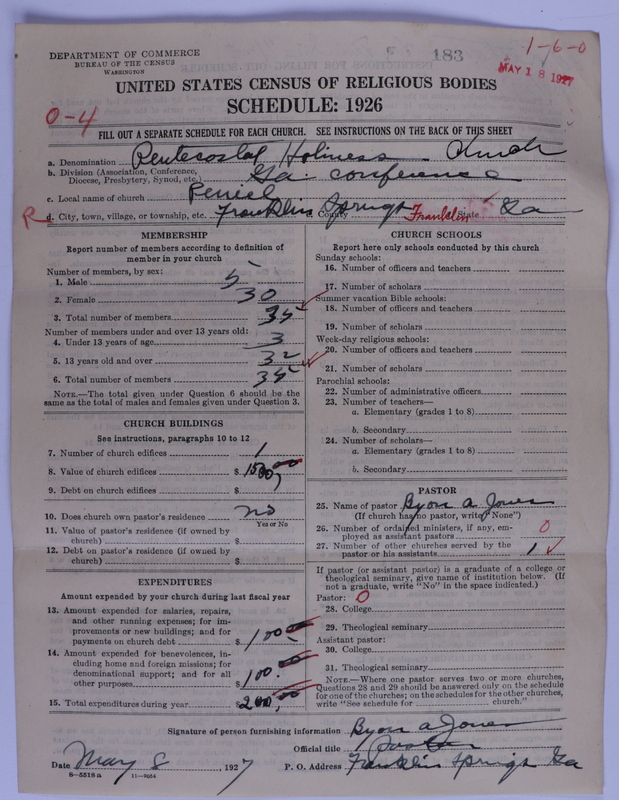 183
1-6-0
MAY 18 1927
DEPARTMENT OF COMMERCE
BUREAU OF THE CENSUS
WASHINGTON
UNITED STATES CENSUS OF RELIGIOUS BODIES
SCHEDULE: 1926
0-4
FILL OUT A SEPARATE SCHEDULE FOR EACH CHURCH. SEE INSTRUCTIONS ON THE BACK OF THIS SHEET
a. Denomination Pentecostal Holiness Church
b. Division (Association, Conference, Diocese, Presbytery, Synod, etc.) Ga. conference
c. Local name of church Peniel
R d. City, town, village, or township, etc. Franklin Springs County Franklin State Ga
MEMBERSHIP
Report number of members according to definition of
member in your church
Number of members, by sex:
1. Male 5
2. Female 30
3. Total number of members 35
Number of members under and over 13 years old:
4. Under 13 years of age 3
5. 13 years old and over 32
6. Total number of members 35
NOTE.—The total given under Question 6 should be
same as the total of males and females given under Question 3.
CHURCH BUILDINGS
See instructions, paragraphs 10 to 12
7. Number of church edifices 1
8. Value of church edifices $ 1500.00
9. Debt on church edifices $
10. Does church own pastor's residence no
Yes or No
11. Value of pastor's residence (if owned by
church) $
12. Debt on pastor's residence (if owned by
church) $
EXPENDITURES
Amount expended by your church during last fiscal year
13. Amount expended for salaries, repairs,
and other running expenses; for im-
provements or new buildings; and for
payments on church debt $ 100.00
14. Amount expended for benevolences, in-
cluding home and foreign missions; for
denominational support; and for all
other purposes $ 100.00
15. Total expenditures during year $ 200.00
CHURCH SCHOOLS
Report here only schools conducted by this church
Sunday schools:
16. Number of officers and teachers
17. Number of scholars
Summer vacation Bible schools:
18. Number of officers and teachers
19. Number of scholars
Week-day religious schools:
20. Number of officers and teachers
21. Number of scholars
Parochial schools:
22. Number of administrative officers
23. Number of teachers—
a. Elementary (grades 1 to 8)
b. Secondary
24. Number of scholars—
a. Elementary (grades 1 to 8)
b. Secondary
PASTOR
25. Name of pastor Byon A Jones
(If church has no pastor, write "None")
26. Number of ordained ministers, if any, em-
ployed as assistant pastors 0
27. Number of other churches served by the
pastor or his assistants 1
If pastor (or assistant pastor) is a graduate of a college or
theological seminary, give name of institution below. (If
not a graduate, write "No" in the space indicated.)
Pastor: 0
28. College
29. Theological seminary
Assistant pastor:
30. College
31. Theological seminary
NOTE.—Where one pastor serves two or more churches,
Questions 28 and 29 should be answered only on the schedule
for one of the churches; on the schedules for the other churches,
write "See schedule for church."
Signature of person furnishing information Byon A Jones
Official title Pastor
Date May 8, 1927 P. O. Address Franklin Springs Ga
8—5518a 11—9064